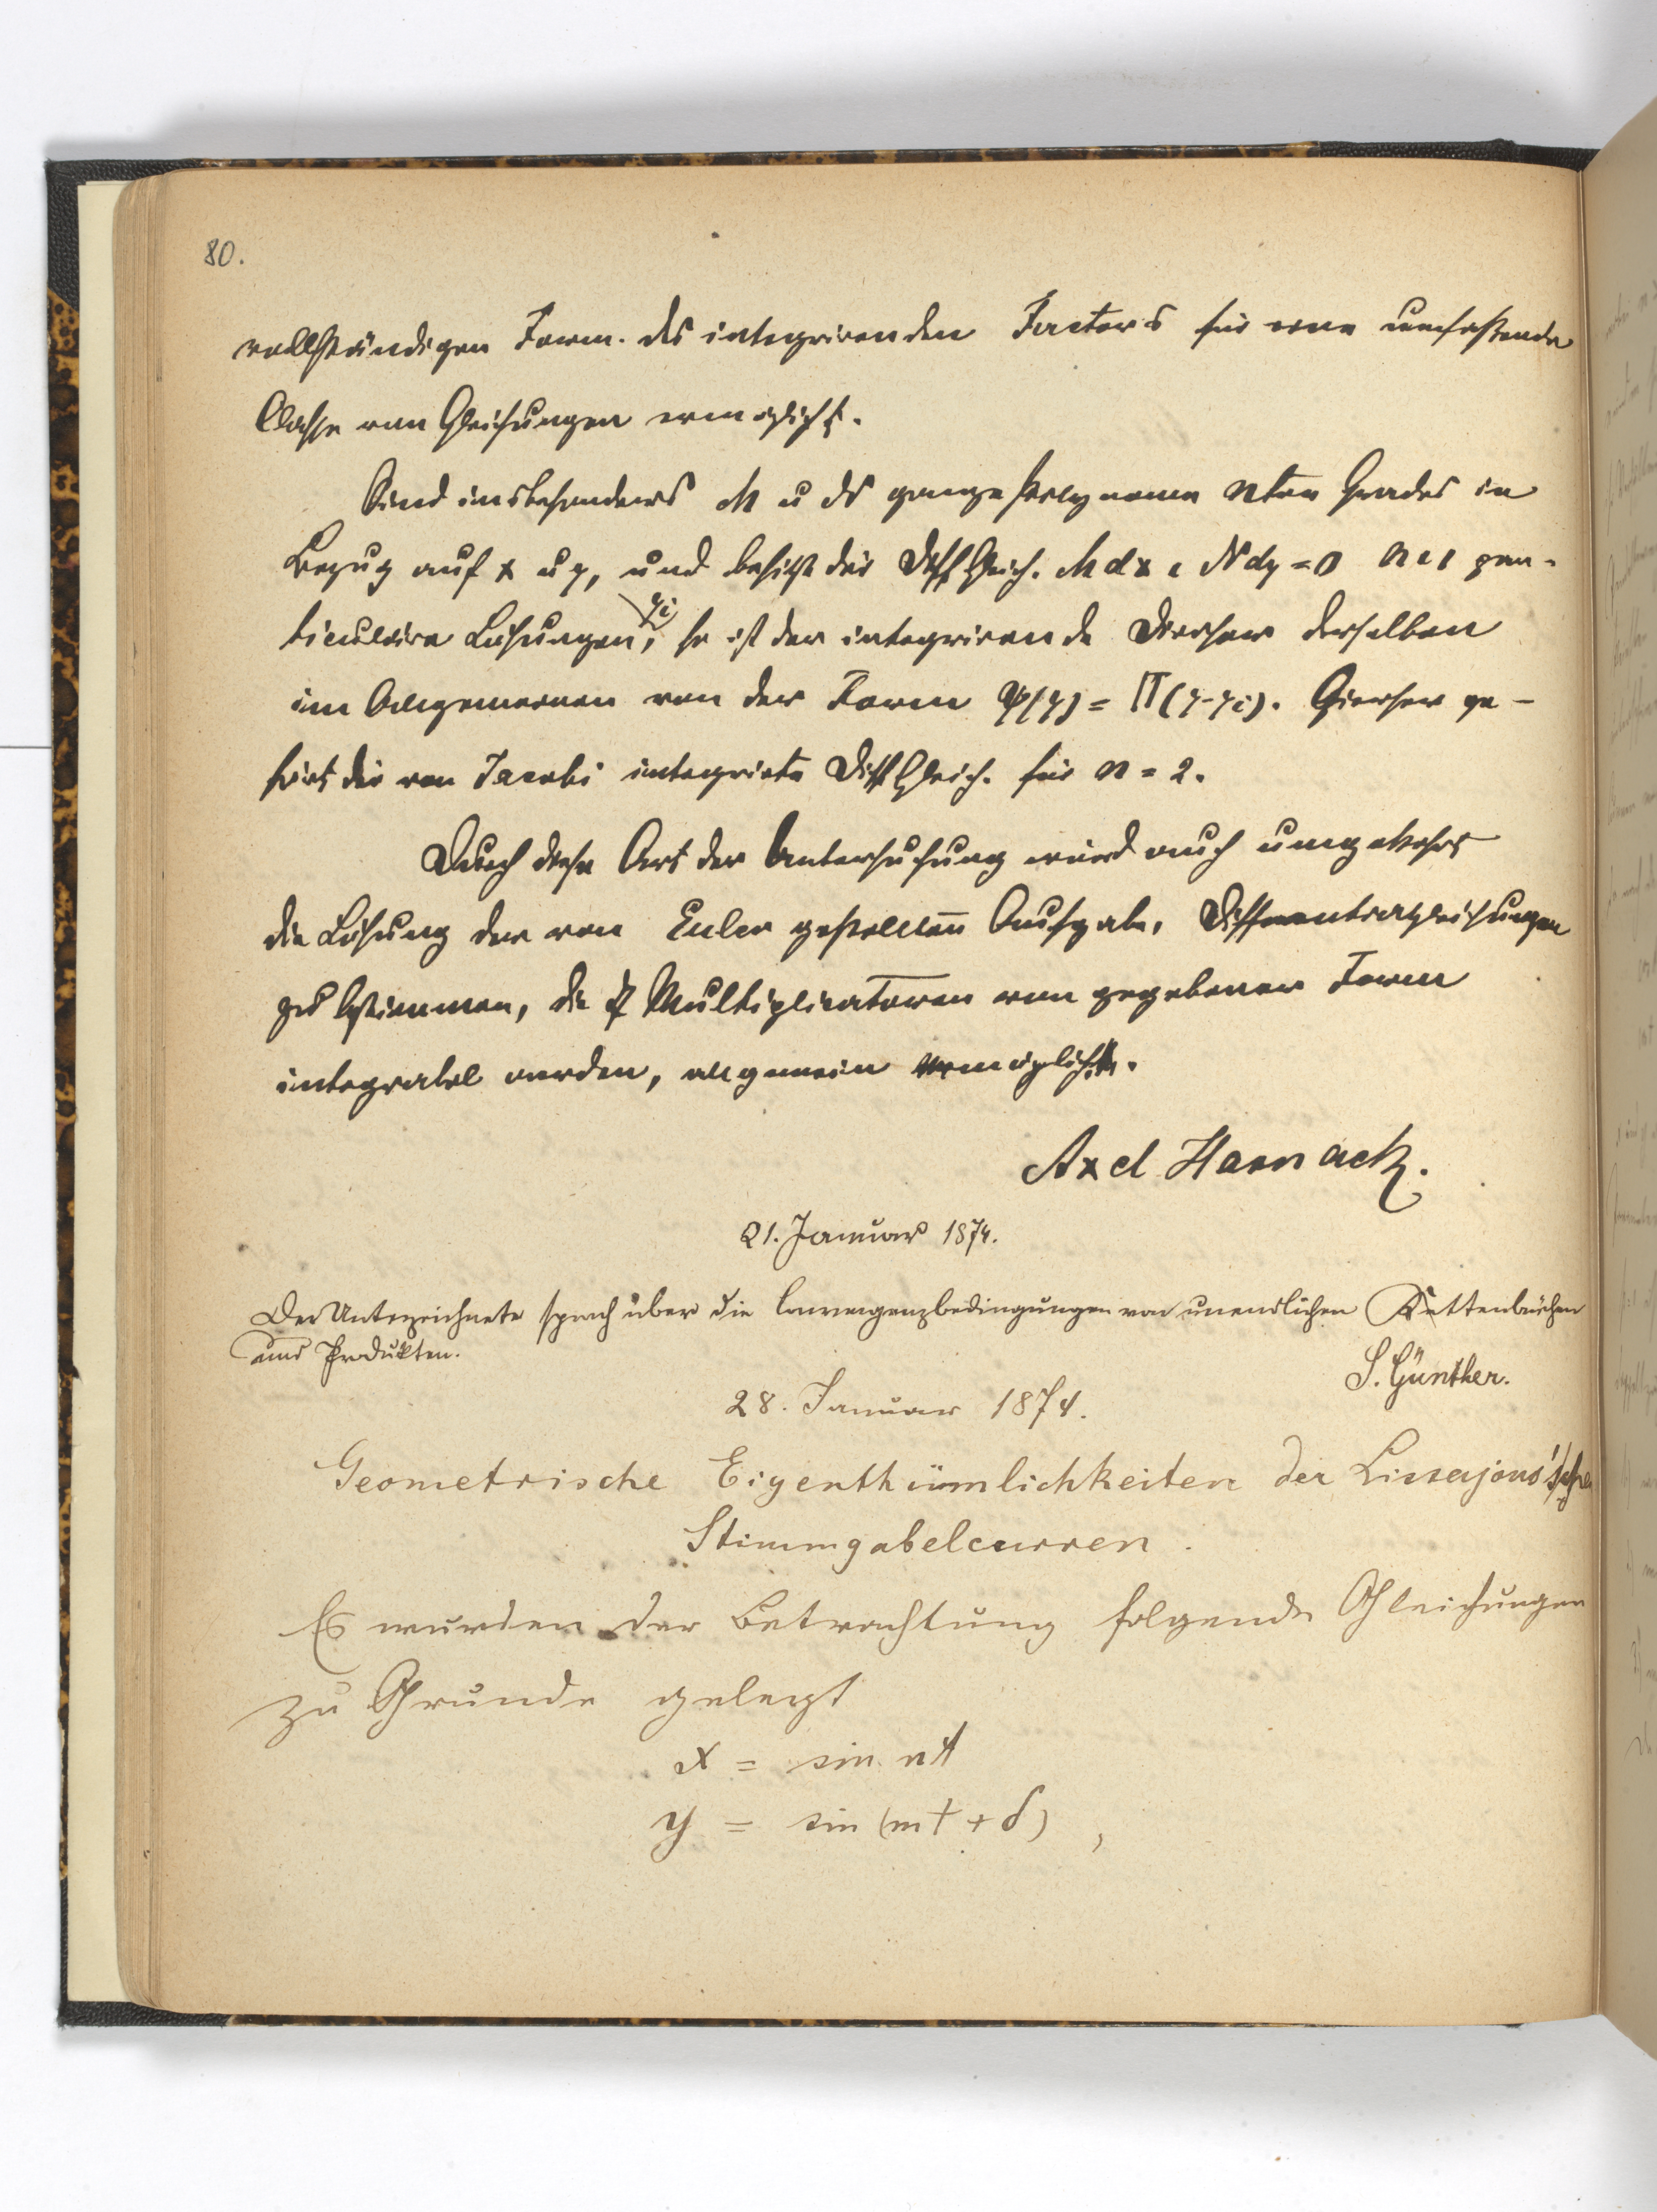 80.
vollständigen Form des integrirenden Factors für eine umfassende
Classe von Gleichungen ermöglicht.
Sind insbesonders M u N ganze Polynome nten Grades in
Bezug auf x u y, und besitzt die Diff Gleich. Mdx + Ndy = 0 n+1 par-
ticuläre Lösungen yi, so ist der integrirende Divisor derselben
im Allgemeinen von der Form φ(y) = Π(y-yi). Hierher ge-
hört die von Jacobi integrirte Diff Gleich. für n = 2.
Durch diese Art der Untersuchung wird auch umgekehrt
die Lösung der von Euler gestellten Aufgabe, Differentialgleichungen
zu bestimmen, die Multiplicatoren von gegebener Form
integrabel werden, allgemein ermöglicht.
Axel Harnack.
21. Januar 1874.
Der Unterzeichnete sprach über die Convergenzbedingungen von unendlichen Kettenbrüchen
und Produkten.
S. Günther.
28. Januar 1874.
Geometrische Eigenthümlichkeiten der Lissajous'schen
Stimmgabelcurven.
Es wurden der Betrachtung folgende Gleichungen
zu Grunde gelegt
x = sin nt
y = sin (mt + δ) ,